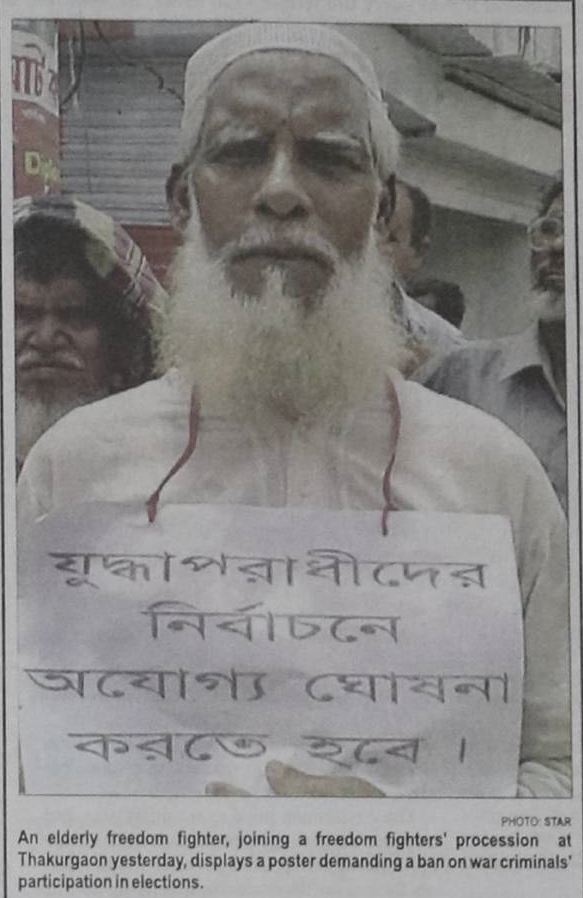 যুদ্ধাপরাধীদের
নির্বাচনে
অযোগ্য ঘোষনা
করতে হবে ।
PHOTO: STAR
An elderly freedom fighter, joining a freedom fighters' procession at
Thakurgaon yesterday, displays a poster demanding a ban on war criminals'
participation in elections.